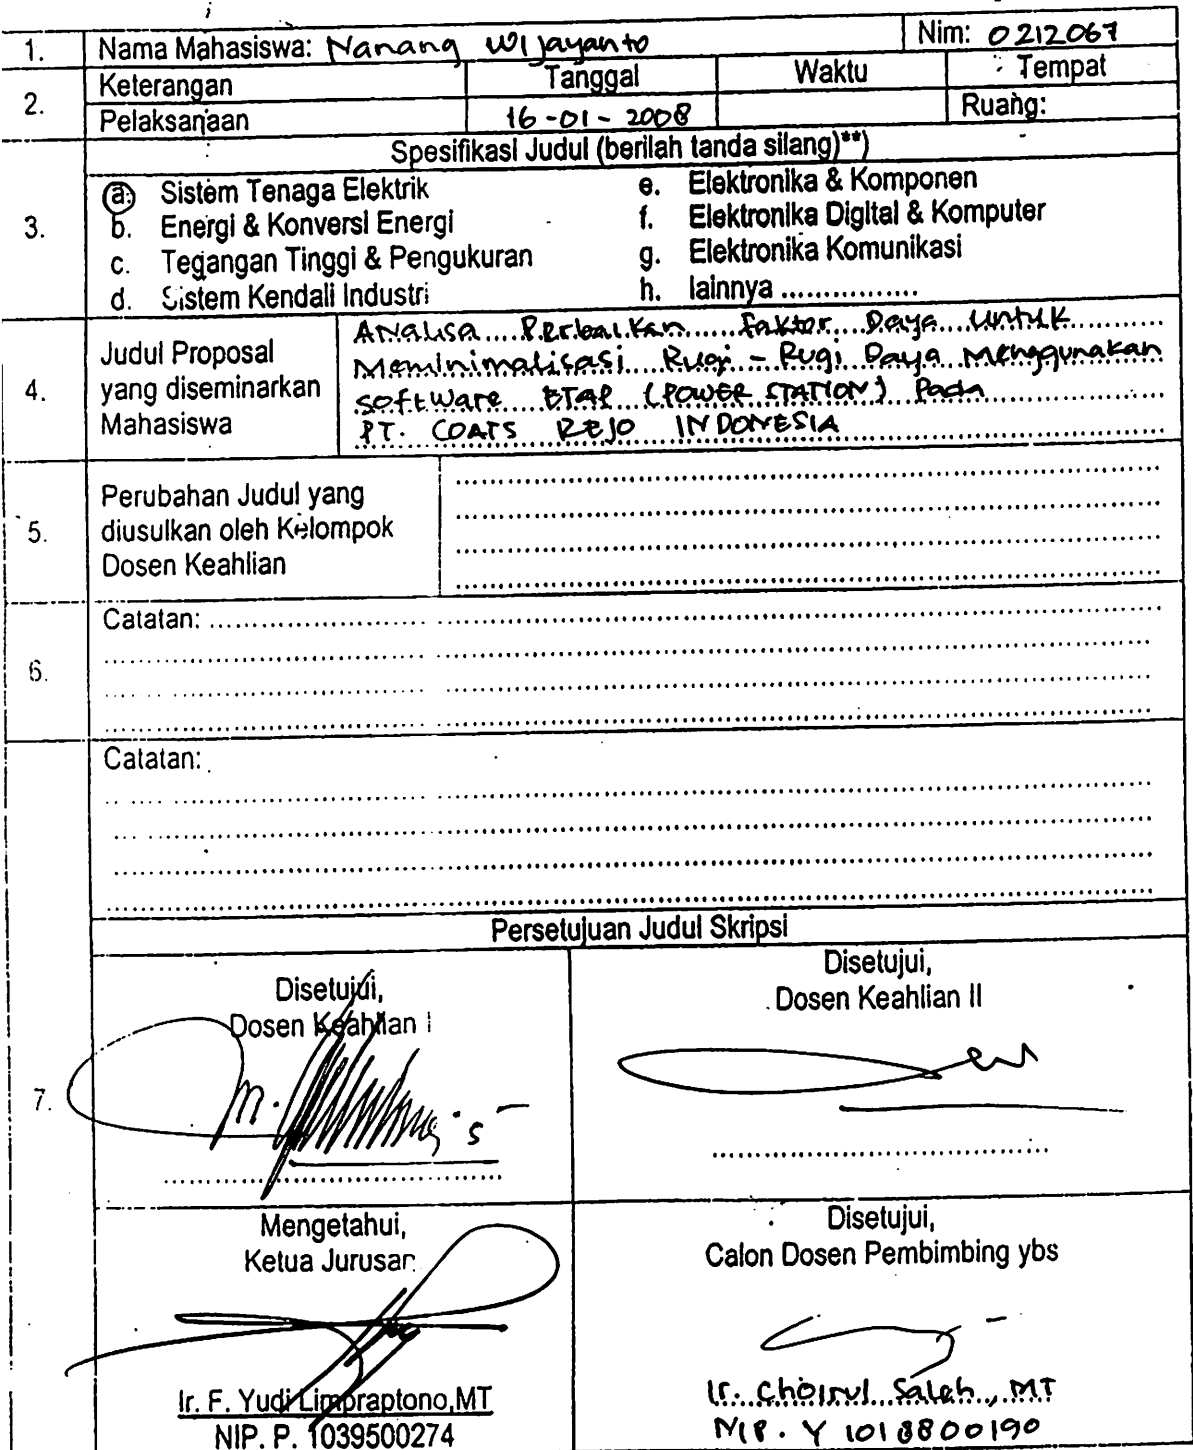 1. Nama Mahasiswa: Nanang Wijayanto Nim: 0212067
2. Keterangan Tanggal Waktu Tempat
Pelaksanaan 16-01-2008 Ruang:
Spesifikasi Judul (berilah tanda silang)**)
3.
a. Sistem Tenaga Elektrik e. Elektronika & Komponen
b. Energi & Konversi Energi f. Elektronika Digital & Komputer
c. Tegangan Tinggi & Pengukuran g. Elektronika Komunikasi
d. Sistem Kendali Industri h. lainnya ................
4. Judul Proposal
yang diseminarkan
Mahasiswa
Analisa Perbaikan faktor Daya Untuk
Meminimalisasi Rugi - Rugi Daya Menggunakan
software ETAP (POWER STATION) Pada
PT. COATS REJO INDONESIA
5. Perubahan Judul yang
diusulkan oleh Kelompok
Dosen Keahlian
6. Catatan:
Catatan:
7. Persetujuan Judul Skripsi
Disetujui,
Dosen Keahlian I
Disetujui,
Dosen Keahlian II
Mengetahui,
Ketua Jurusan
Ir. F. Yudi Limpraptono,MT
NIP. P. 1039500274
Disetujui,
Calon Dosen Pembimbing ybs
Ir. Choirul Saleh, MT
NIP. Y 1018800190